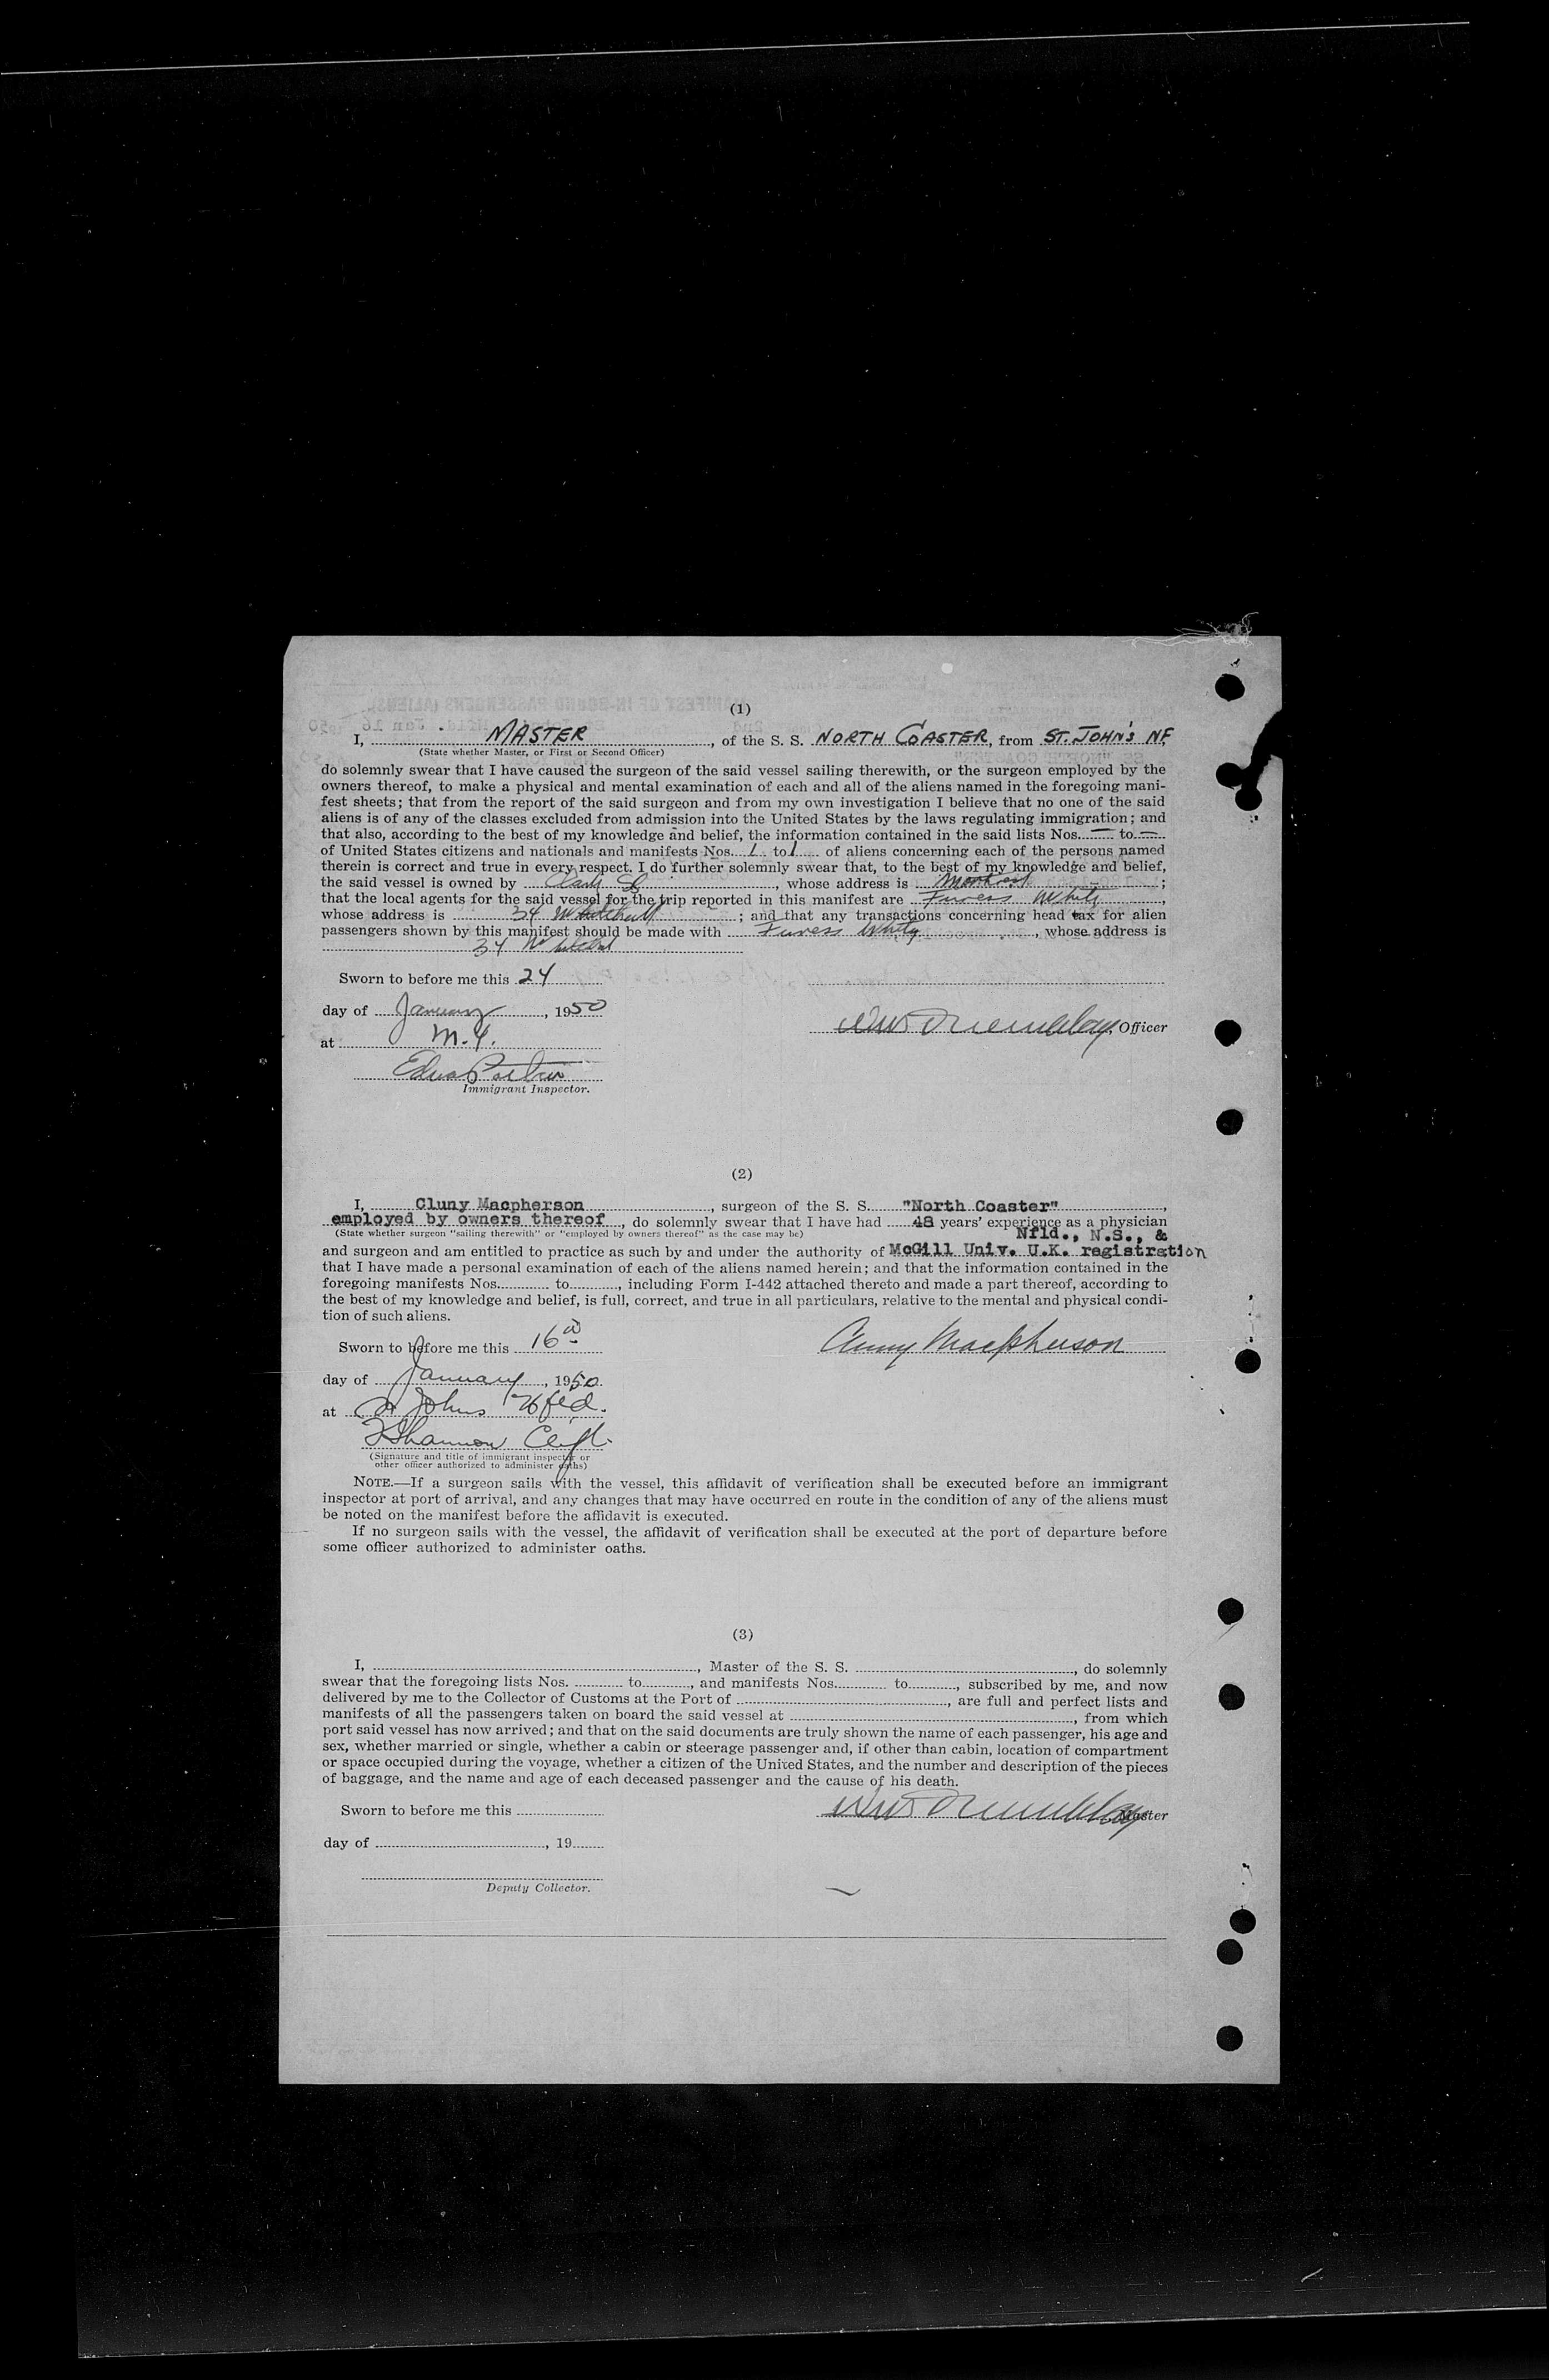 (1)
I, MASTER, of the S. S. NORTH COASTER, from ST. JOHN'S NF
(State whether Master, or First or Second Officer)
do solemnly swear that I have caused the surgeon of the said vessel sailing therewith, or the surgeon employed by the
owners thereof, to make a physical and mental examination of each and all of the aliens named in the foregoing mani-
fest sheets; that from the report of the said surgeon and from my own investigation I believe that no one of the said
aliens is of any of the classes excluded from admission into the United States by the laws regulating immigration; and
that also, according to the best of my knowledge and belief, the information contained in the said lists Nos. — to —
of United States citizens and nationals and manifests Nos. 1 to 1 of aliens concerning each of the persons named
therein is correct and true in every respect. I do further solemnly swear that, to the best of my knowledge and belief,
the said vessel is owned by , whose address is Montreal ;
that the local agents for the said vessel for the trip reported in this manifest are Furness Withy ,
whose address is 34 Whitehall ; and that any transactions concerning head tax for alien
passengers shown by this manifest should be made with Furness Withy , whose address is
34 Whitehall
Sworn to before me this 24
day of January, 1950
at N.Y.
Officer
Immigrant Inspector.
(2)
I, Cluny Macpherson, surgeon of the S. S. "North Coaster",
employed by owners thereof, do solemnly swear that I have had 48 years' experience as a physician
(State whether surgeon "sailing therewith" or "employed by owners thereof" as the case may be)
Nfld., N.S., &
and surgeon and am entitled to practice as such by and under the authority of McGill Univ. U.K. registration
that I have made a personal examination of each of the aliens named herein; and that the information contained in the
foregoing manifests Nos. to , including Form I-442 attached thereto and made a part thereof, according to
the best of my knowledge and belief, is full, correct, and true in all particulars, relative to the mental and physical condi-
tion of such aliens.
Sworn to before me this 16th
Cluny Macpherson
day of January, 1950
at St Johns Nfld.
(Signature and title of immigrant inspector or
other officer authorized to administer oaths)
NOTE.—If a surgeon sails with the vessel, this affidavit of verification shall be executed before an immigrant
inspector at port of arrival, and any changes that may have occurred en route in the condition of any of the aliens must
be noted on the manifest before the affidavit is executed.
If no surgeon sails with the vessel, the affidavit of verification shall be executed at the port of departure before
some officer authorized to administer oaths.
(3)
I, , Master of the S. S. , do solemnly
swear that the foregoing lists Nos. to , and manifests Nos. to , subscribed by me, and now
delivered by me to the Collector of Customs at the Port of , are full and perfect lists and
manifests of all the passengers taken on board the said vessel at , from which
port said vessel has now arrived; and that on the said documents are truly shown the name of each passenger, his age and
sex, whether married or single, whether a cabin or steerage passenger and, if other than cabin, location of compartment
or space occupied during the voyage, whether a citizen of the United States, and the number and description of the pieces
of baggage, and the name and age of each deceased passenger and the cause of his death.
Sworn to before me this
Master
day of , 19
Deputy Collector.